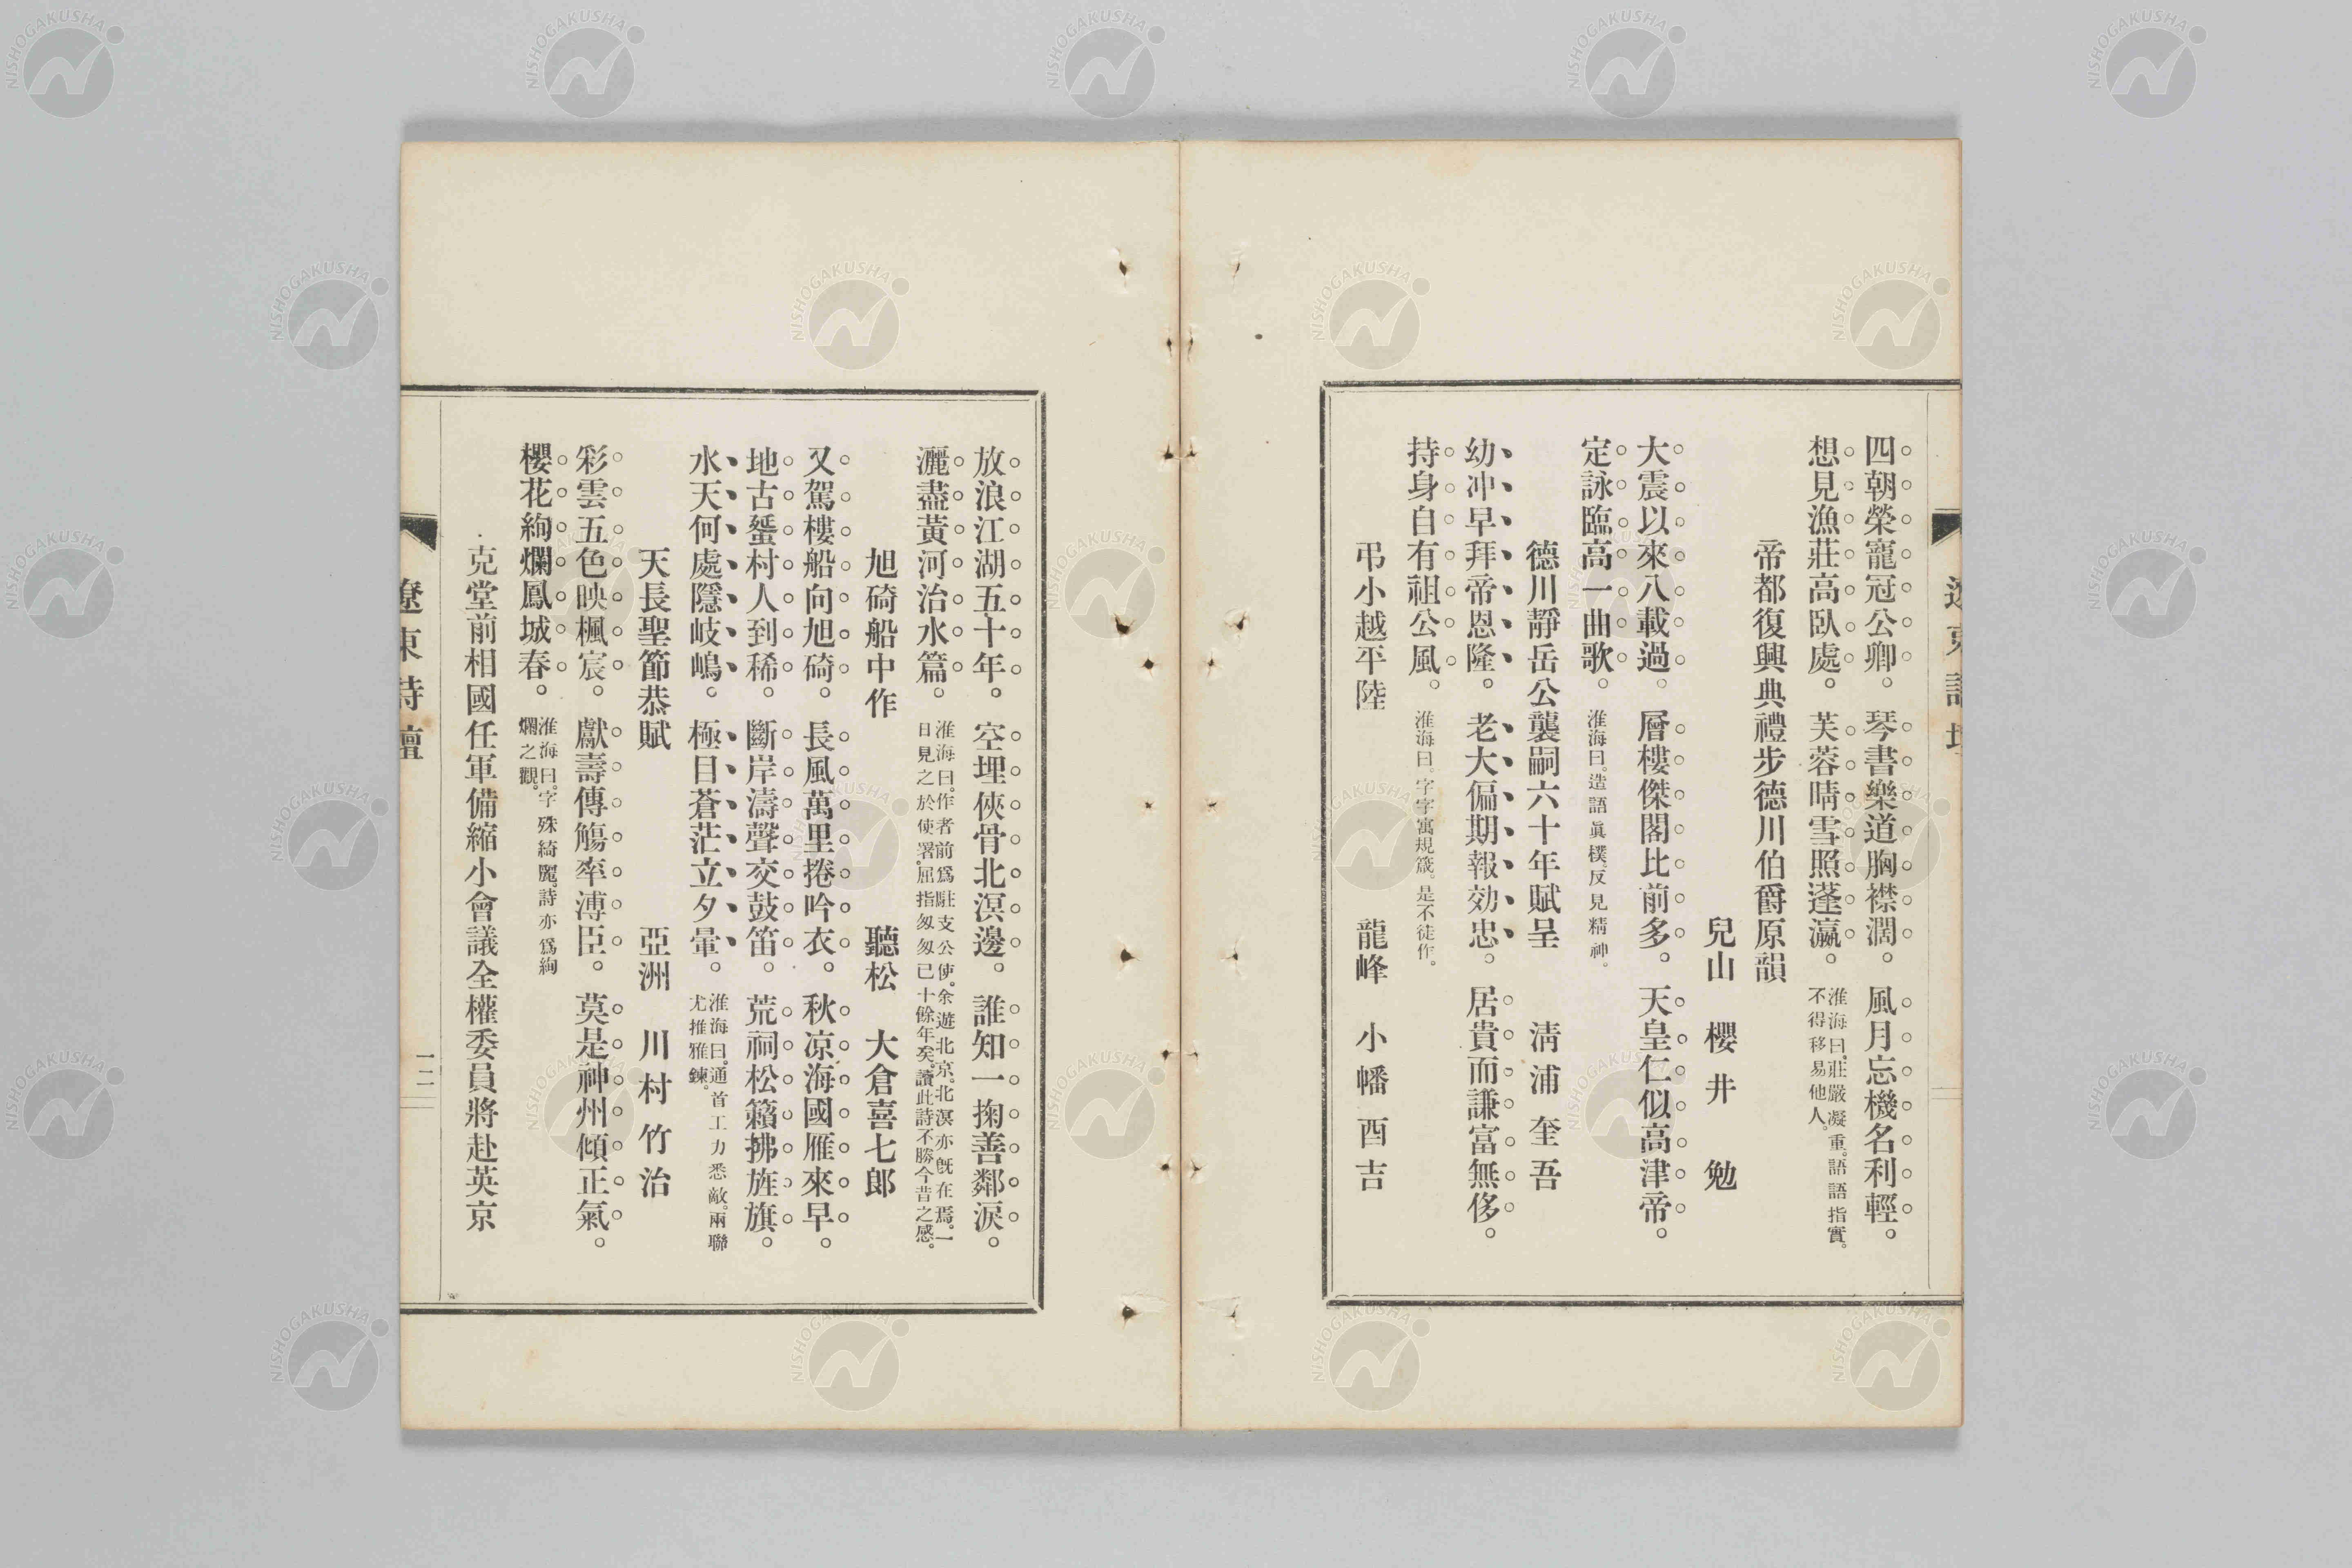 四朝榮寵冠公卿。琴書樂道胸襟濶。風月忘機名利輕。
想見漁莊高臥處。芙蓉晴雪照蓬瀛。
淮海曰。莊嚴凝重。語語指實。
不得移易他人。
帝都復興典禮步德川伯爵原韻
兒山 櫻井勉
大震以來八載過。層樓傑閣比前多。天皇仁似高津帝。
定詠臨高一曲歌。
淮海曰。造語眞樸。反見精神。
德川靜岳公襲嗣六十年賦呈 淸浦奎吾
幼冲早拜帝恩隆。老大偏期報効忠。居貴而謙富無侈。
持身自有祖公風。
淮海曰。字字寓規箴。是不徒作。
弔小越平陸 龍峰 小幡酉吉
放浪江湖五十年。空埋俠骨北溟邊。誰知一掬善鄰淚。
灑盡黃河治水篇。
淮海曰。作者前爲駐支公使。余遊北京。北溟亦既在焉。一
日見之於使署。屈指匆匆已十餘年矣。讀此詩不勝今昔之感。
旭碕船中作 聽松 大倉喜七郎
又駕樓船向旭碕。長風萬里捲吟衣。秋凉海國雁來早。
地古蜑村人到稀。斷岸濤聲交鼓笛。荒祠松籟拂旌旗。
水天何處隱岐嶋。極目蒼茫立夕暈。
淮海曰。通首工力悉敵。兩聯
尤推雅鍊。
天長聖節恭賦 亞洲 川村竹治
彩雲五色映楓宸。獻壽傳觴率溥臣。莫是神州傾正氣。
櫻花絢爛鳳城春。
淮海曰。字殊綺麗。詩亦爲絢
爛之觀。
克堂前相國任軍備縮小會議全權委員將赴英京
遼東詩壇
一二
NISHOGAKUSHA